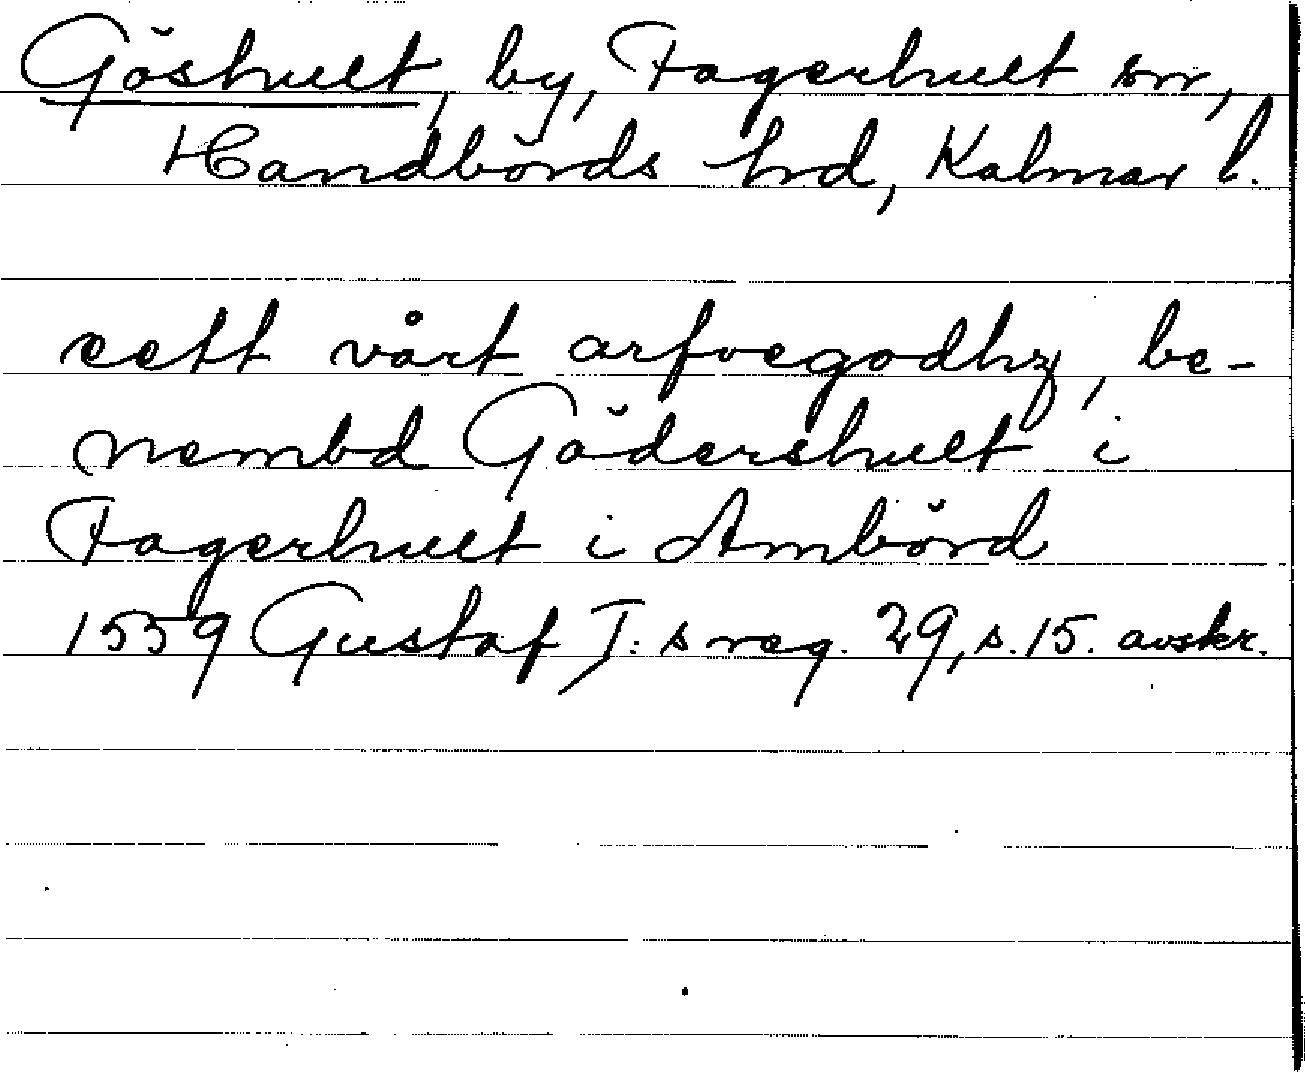 Göshult, by, Fagerhult sn,
Handbörds hd, Kalmar l.
eett vårt arfvegodhz, be-
nembd Gödershult i
Fagerhult i Ambörd
1559 Gustaf I:s reg. 29, s. 15. avskr.